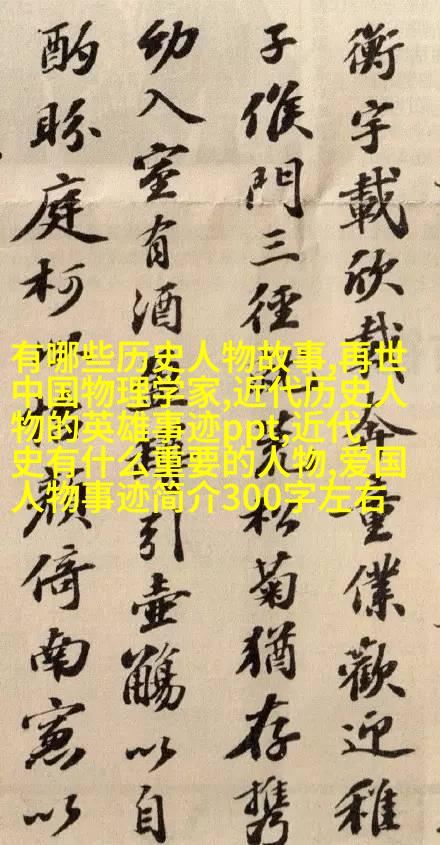 衡宇載欣載奔童僕歡迎稚
子候門三徑荒松菊猶存攜
幼入室有酒盈樽引壺觴以自
酌眄庭柯顏倚南窻以
有哪些历史人物故事,再世
中国物理学家,近代历史人
物的英雄事迹ppt,近代
史有什么重要的人物,爱国
人物事迹简介300字左右